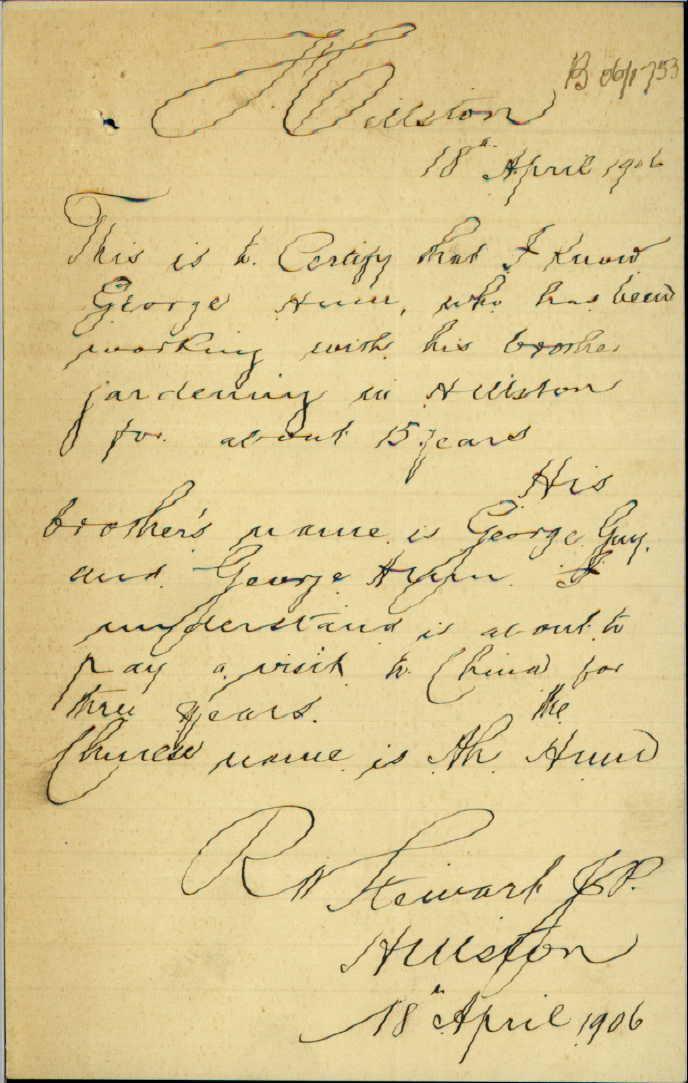 Hillston
18th April 1906
This is to Certify that I Know
George Hunn, who has been
working with his brother
gardenning in Hillston
for about 15 years
His
brother's name is George Guy.
and George Hunn I
understand is about to
pay a visit to China for
three years. the
Chinese name is Ah Hunn
R W Stewart J.P.
Hillston
18th April 1906